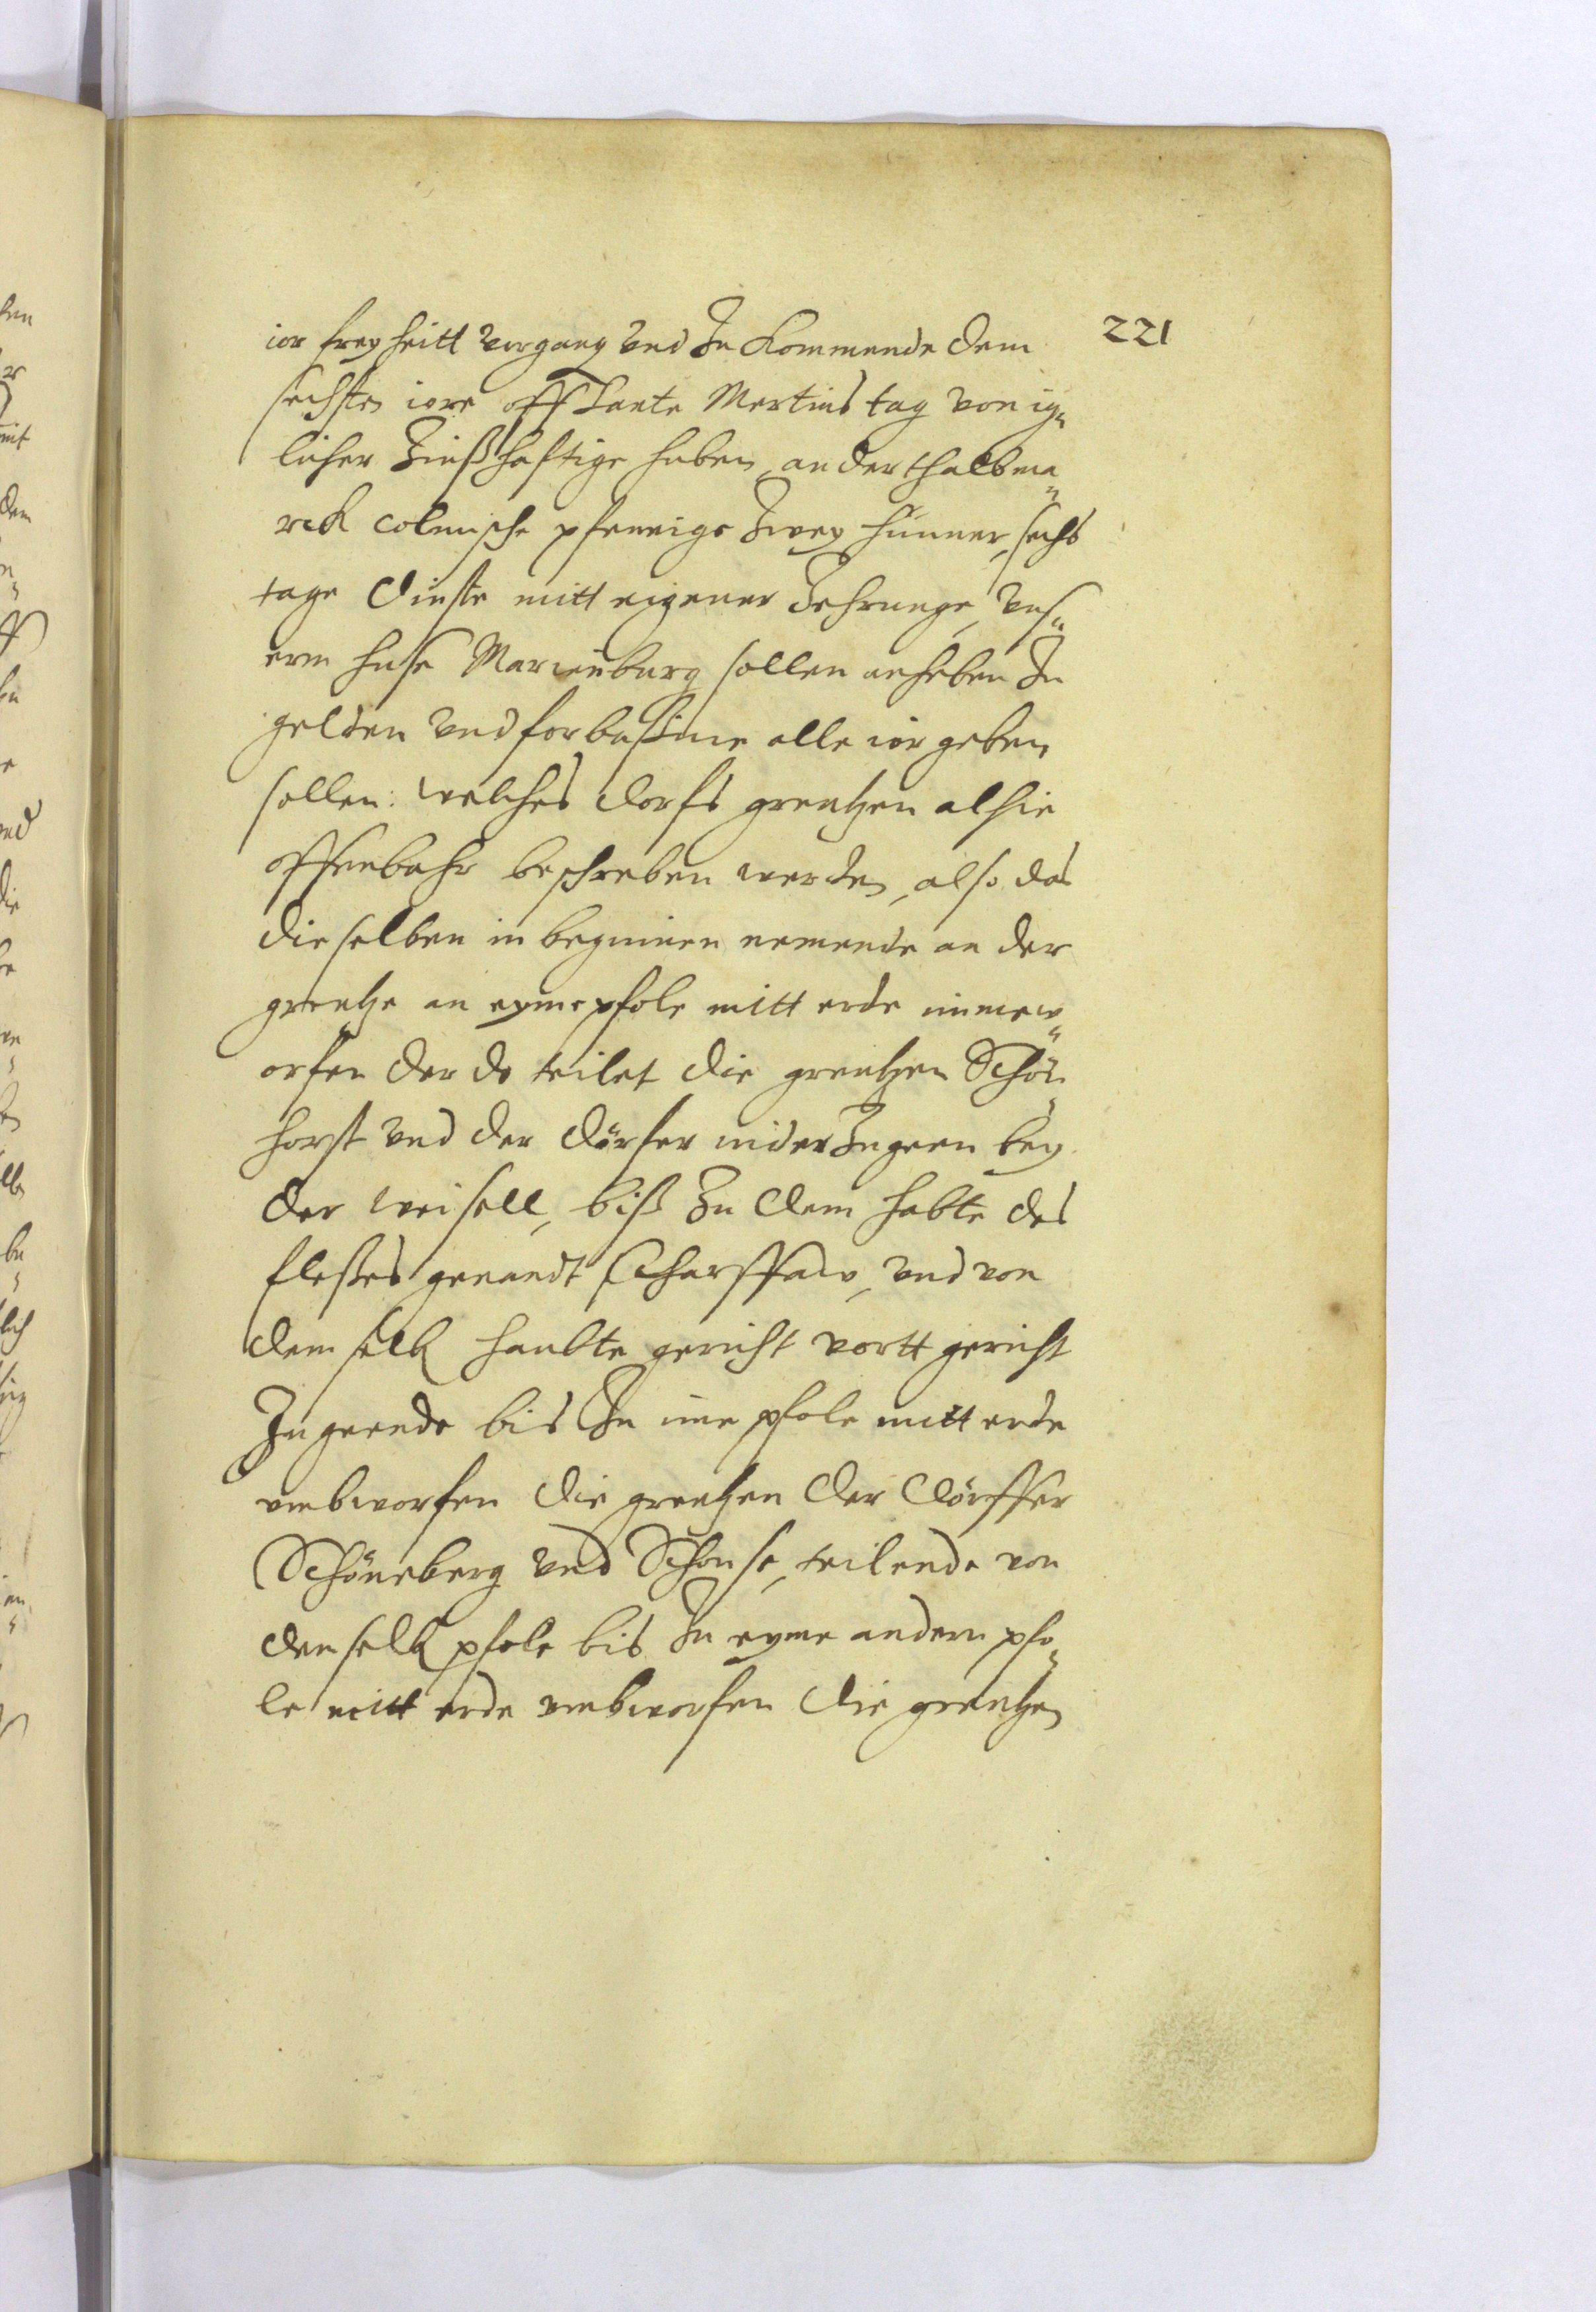 221
ior freyheitt vorgang vnd Zu Kommende dem
sechsten iore off Sante Mertins tag von ig„
licher Zinßhaftige huben, anderthalb ma„
rck colmische pfennige Zwey hünner, sechs
tage dinste mitt eigener Zehrunge, vns„
erm huse Marienburg sollen anheben Zu
gelden vnd forbasme alle ior geben
sollen: welches dorfs grentzen alhie
offenbahr beschreben werden, also das
dieselben in beginnen nemende an der
grentze an eyme pfole mitt erde immew„
orfen der do teilet die grentzen Schön„
horst vnd der dörfer niderZugeen bey
der weisell, biß Zu dem habte des
flosses genandt Scharffaw, vnd von
dem selb haubte gericht vortt gericht
Zugeende bis Zu ime pfole mitt erde
vmbworfen die grentzen der dörffer
Schöneberg vnd Schonse, teilende von
denselb pfole bis Zu eyme andern pfo„
le mitt erde vmbworfen die grentzen